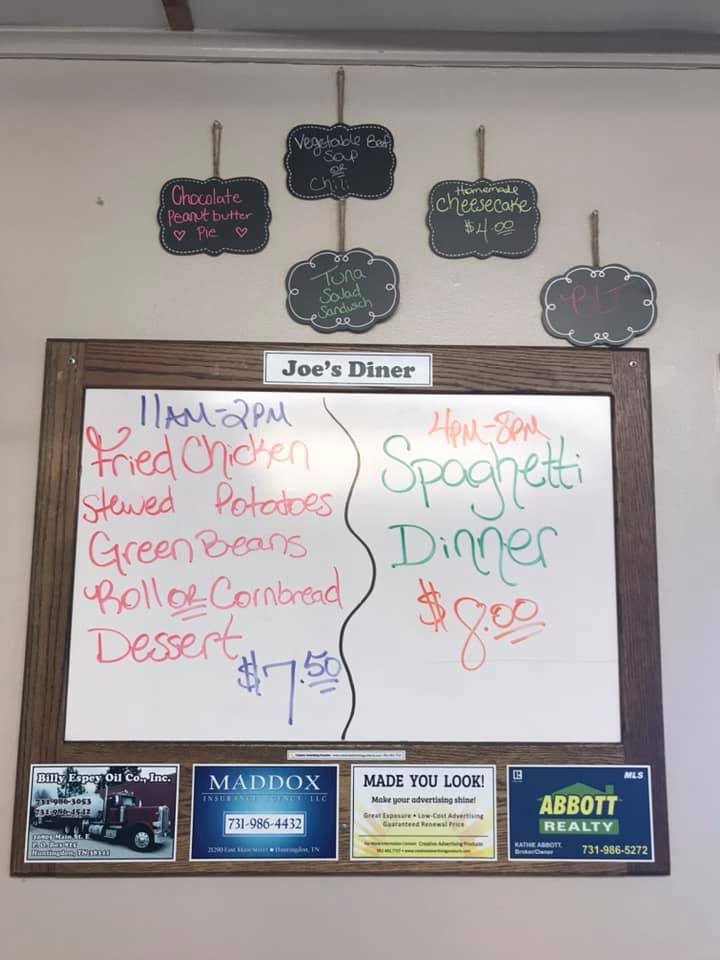 Vegetable Beef
Soup
or
Chili
Chocolate
Peanut butter
Pie
Homemade
Cheesecake
$4.00
Tuna
Salad
Sandwich
BLT
Joe's Diner
11AM-2PM
Fried Chicken
Stewed Potatoes
Green Beans
Roll or Cornbread
Dessert
$7.50
4PM-8PM
Spaghetti
Dinner
$8.00
Billy Espey Oil Co., Inc.
731-986-3053
731-986-4542
Huntingdon, TN 38344
MADDOX
INSURANCE AGENCY LLC
731-986-4432
21290 East Main Street • Huntingdon, TN
MADE YOU LOOK!
Make your advertising shine!
Great Exposure • Low-Cost Advertising
Guaranteed Renewal Price
For More Information Contact: Creative Advertising Products
R
MLS
ABBOTT
REALTY
KATHIE ABBOTT,
Broker/Owner
731-986-5272